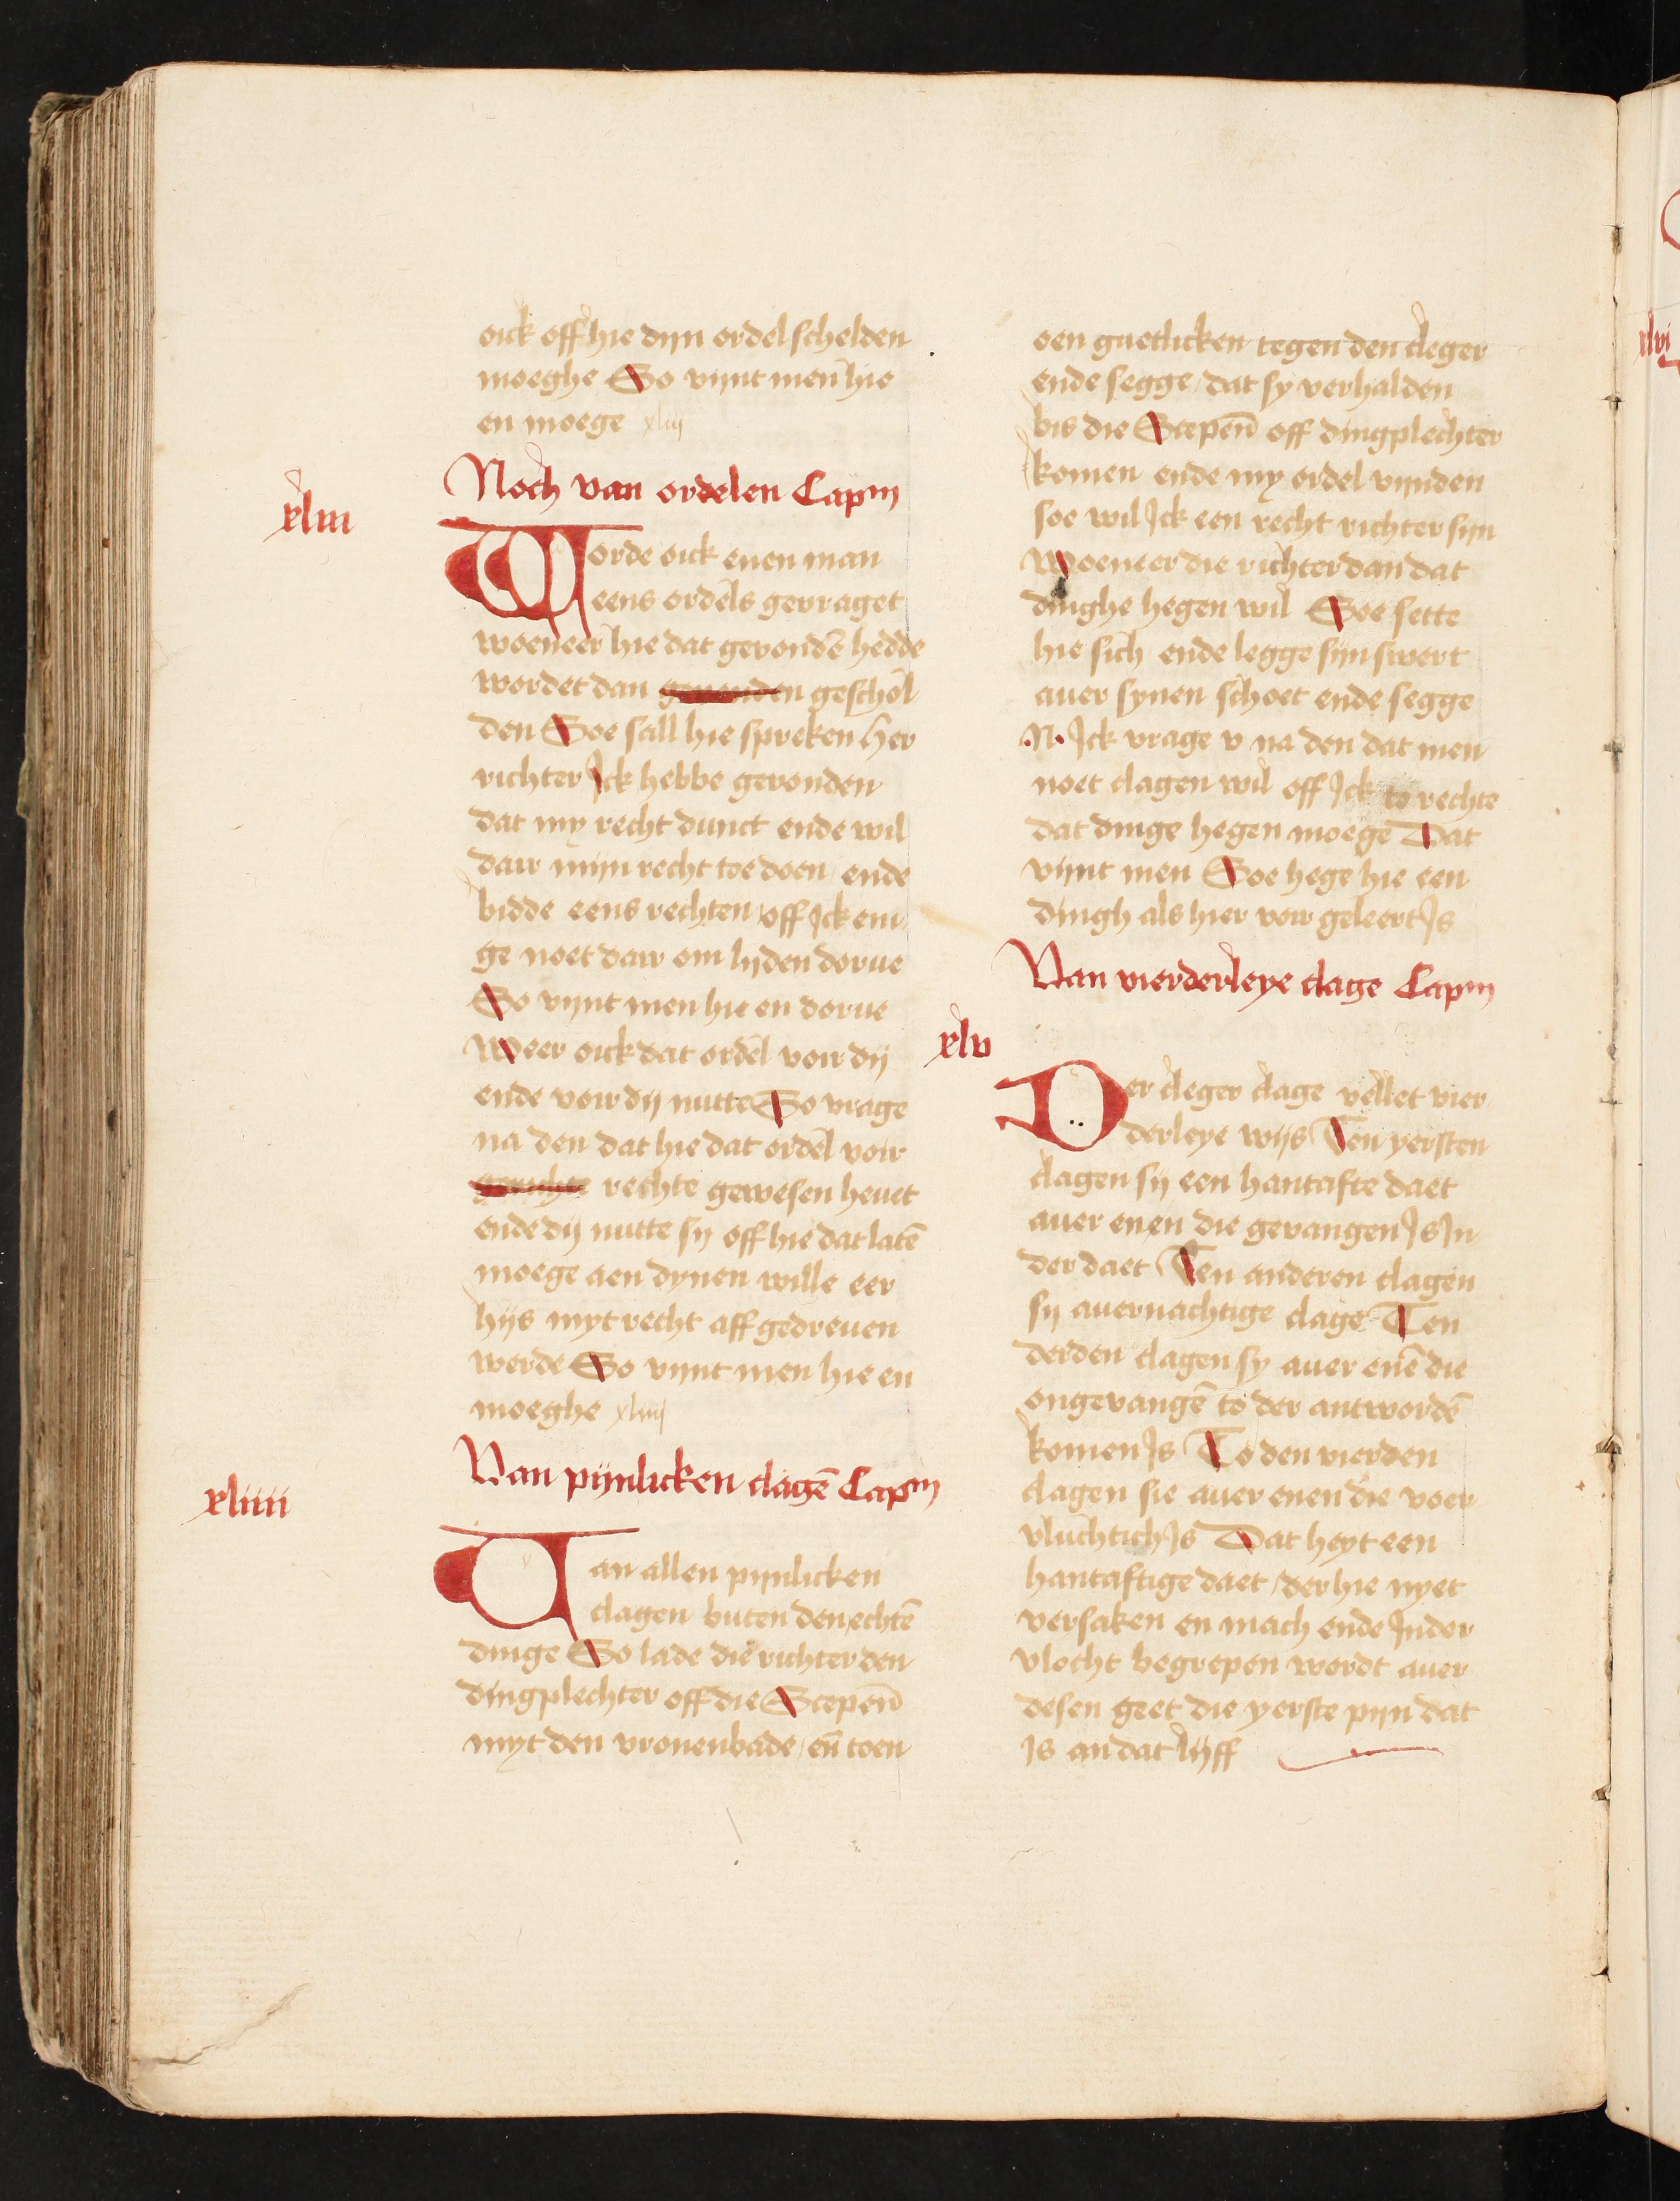 oick off hie dijn ordel schelden
moeghe So vijnt men hie
en moege xliij
Noch van ordelen Capm
xliii
Worde oick enen man
eens ordels gevraget
woeneer hie dat gevondē hedde
wordet dan gevonden geschol
den Soe sall hie spreken her
richter Jck hebbe gevonden
dat my recht dunct ende wil
dair mijn recht toe doen ende
bidde eens rechten off Jck eni
ge noet dair om lyden dorue
So vijnt men hie en dorue
Weer oick dat ordel voir dij
ende voir dij nutte So vrage
na den dat hie dat ordel voir
gerichte rechte gewesen heuet
ende dij nutte sy off hie dat latē
moege aen dynen wille eer
hijs myt recht aff gedreuen
werde So vijnt men hie en
moeghe xliiij
Van pijnlicken clagē Capm
xliiii
Van allen pijnlicken
clagen buten den echtē
dinge So lade die richter den
dingplechter off die Scepen̄
myt den vronenbade en̄ toen
oen guetlicken tegen den cleger
ende segge dat sy verhalden
bis die Scepen̄ off dingplechter
komen ende my ordel vijnden
soe wil Jck een recht richter sijn
Woeneer die richter dan dat
dinghe hegen wil Soe sette
hie sich ende legge sijn swert
auer synen schoet ende segge
.N. Jck vrage v na den dat men
noet clagen wil off Jck to rechte
dat dinge hegen moege Dat
vijnt men Soe hege hie een
dingh als hier voir geleert Js
Van vierderleye clage Capm
xlv
Der cleger clage vellet vier
derleye wijs Ten yersten
clagen sij een hantafte daet
auer enen die gevangen Js Jn
der daet Ten anderen clagen
sij auernachtige clage Ten
derden clagen sy auer enē die
ongevangē to der antwordē
komen Js To den vierden
clagen sie auer enen die voer
vluchtich Js Dat heyt een
hantaftige daet der hie nyet
versaken en mach ende Jn der
vlocht begrepen wordt auer
desen geet die yerste pijn dat
is an dat lijff
xlvi